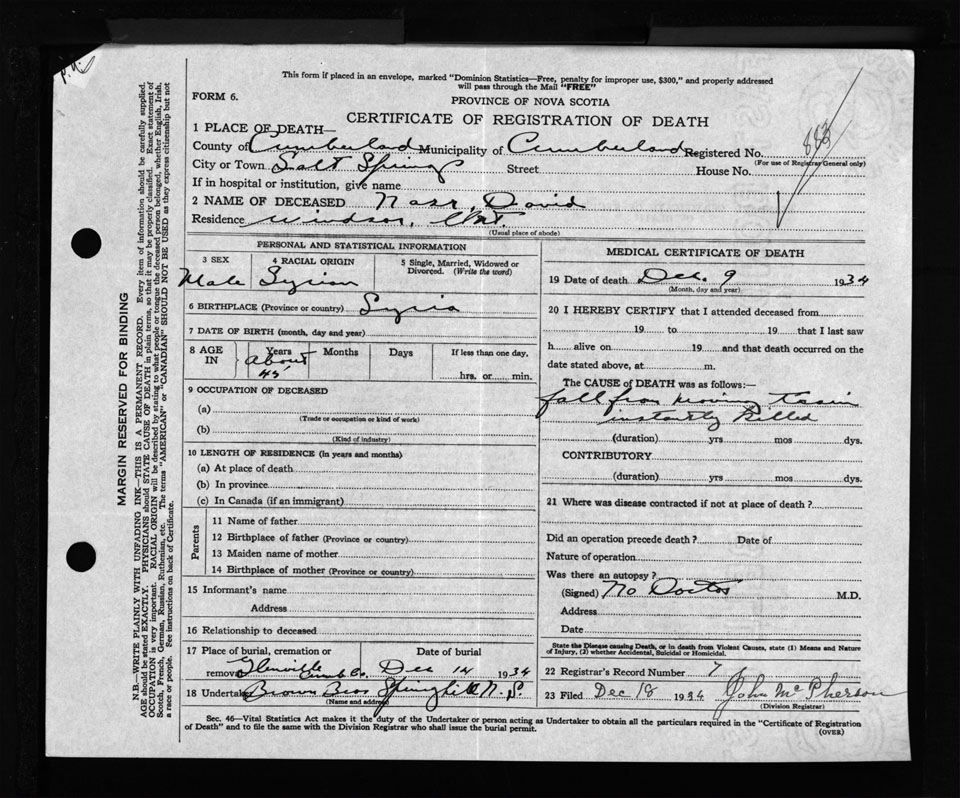 P.Q.
This form if placed in an envelope, marked "Dominion Statistics—Free, penalty for improper use, $300," and properly addressed
will pass through the Mail "FREE"
FORM 6.
PROVINCE OF NOVA SCOTIA
CERTIFICATE OF REGISTRATION OF DEATH
1 PLACE OF DEATH—
County of Cumberland Municipality of Cumberland Registered No. 883
(For use of Registrar General only)
City or Town Salt Springs Street House No.
If in hospital or institution, give name
2 NAME OF DECEASED Nasr, David
Residence Windsor, Ont.
(Usual place of abode)
PERSONAL AND STATISTICAL INFORMATION
3 SEX 4 RACIAL ORIGIN 5 Single, Married, Widowed or
Divorced. (Write the word)
Male Syrian
6 BIRTHPLACE (Province or country) Syria
7 DATE OF BIRTH (month, day and year)
8 AGE IN Years Months Days If less than one day,
about
45
hrs. or min.
9 OCCUPATION OF DECEASED
(a)
(Trade or occupation or kind of work)
(b)
(Kind of industry)
10 LENGTH OF RESIDENCE (In years and months)
(a) At place of death
(b) In province
(c) In Canada (if an immigrant)
Parents
11 Name of father
12 Birthplace of father (Province or country)
13 Maiden name of mother
14 Birthplace of mother (Province or country)
15 Informant's name
Address
16 Relationship to deceased
17 Place of burial, cremation or Date of burial
removal Glenville Cumb Co. Dec 14 1934
18 Undertaker Brown Bros Springhill N. S.
(Name and address)
MEDICAL CERTIFICATE OF DEATH
19 Date of death Dec. 9 1934
(Month, day and year)
20 I HEREBY CERTIFY that I attended deceased from
19 to 19 that I last saw
h alive on 19 and that death occurred on the
date stated above, at m.
The CAUSE of DEATH was as follows:—
fall from moving train
instantly killed
(duration) yrs mos dys.
CONTRIBUTORY
(duration) yrs mos dys.
21 Where was disease contracted if not at place of death?
Did an operation precede death? Date of
Nature of operation
Was there an autopsy?
(Signed) No Doctor M.D.
Address
Date
State the Disease causing Death, or in death from Violent Causes, state (1) Means and Nature
of Injury, (2) whether Accidental, Suicidal or Homicidal.
22 Registrar's Record Number 7
23 Filed Dec 18 1934 John McPherson
(Division Registrar)
Sec. 46—Vital Statistics Act makes it the duty of the Undertaker or person acting as Undertaker to obtain all the particulars required in the "Certificate of Registration
of Death" and to file the same with the Division Registrar who shall issue the burial permit.
(OVER)
MARGIN RESERVED FOR BINDING
N.B.—WRITE PLAINLY WITH UNFADING INK—THIS IS A PERMANENT RECORD. Every item of information should be carefully supplied.
AGE should be stated EXACTLY. PHYSICIANS should STATE CAUSE OF DEATH in plain terms, so that it may be properly classified. Exact statement of
OCCUPATION is very important. RACIAL ORIGIN will be described by stating to what people or tongue the deceased person belonged, whether English, Irish,
Scotch, French, German, Russian, Ruthenian, etc. The terms "AMERICAN" or "CANADIAN" SHOULD NOT BE USED as they express citizenship but not
a race or people. See instructions on back of Certificate.